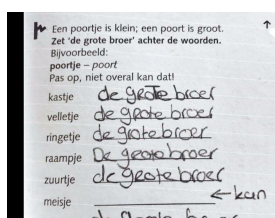 Een poortje is klein; een poort is groot.
Zet 'de grote broer' achter de woorden.
Bijvoorbeeld:
poortje – poort
Pas op, niet overal kan dat!
kastje de grote broer
velletje de grote broer
ringetje de grote broer
raampje De grote broer
zuurtje de grote broer
meisje ← kan